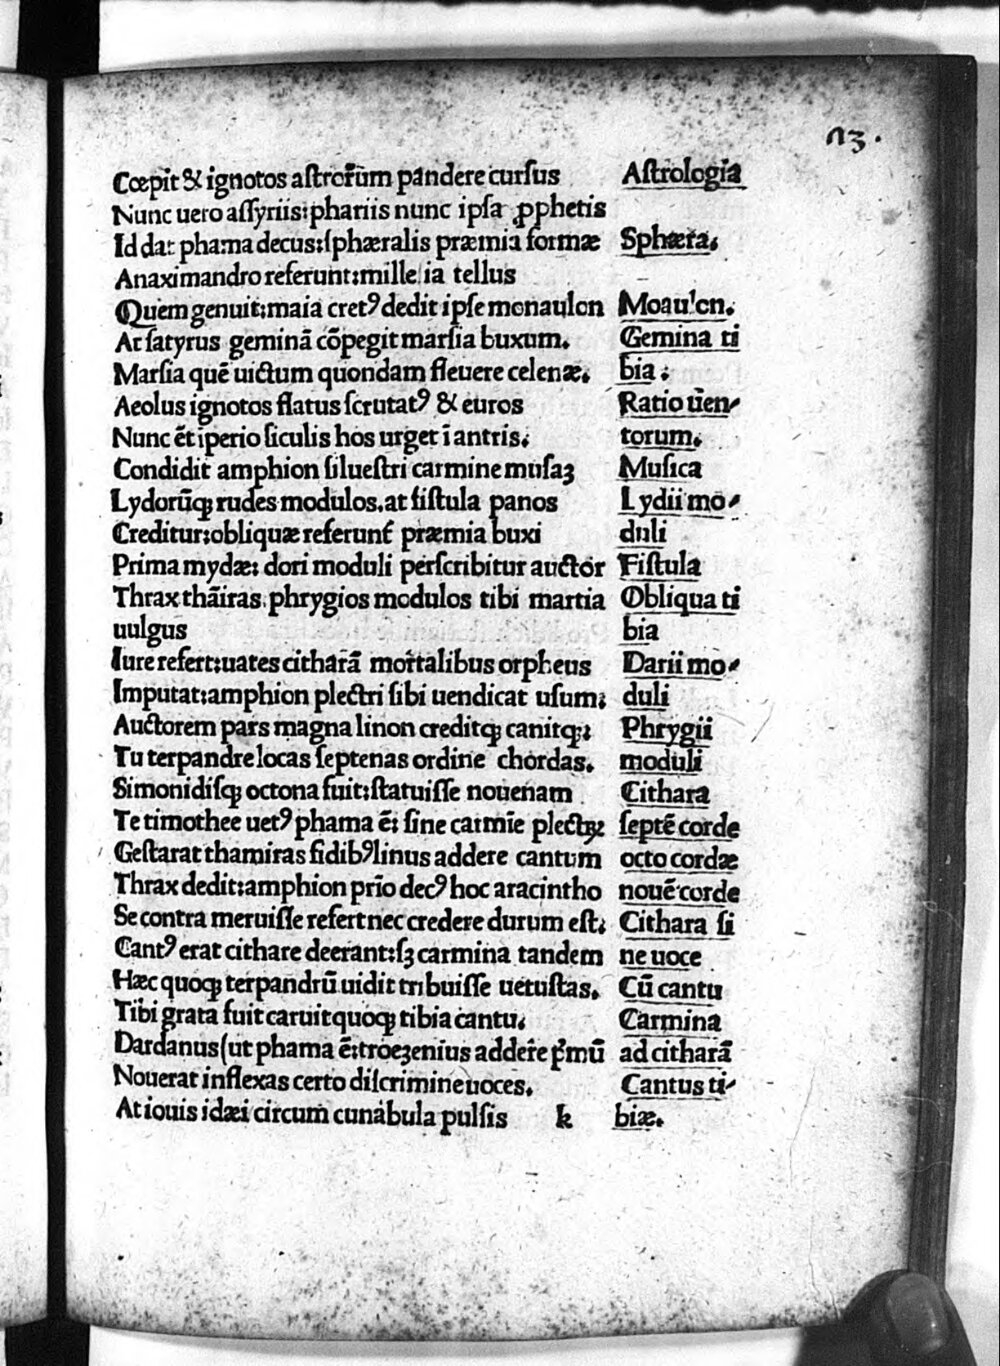 73.
Cœpit & ignotos aſtrorum pandere curſus Aſtrologia
Nunc uero aſſyriis: phariis nunc ipſa ꝓphetis
Id dat phama decus: ſphæralis præmia formæ Sphæra.
Anaximandro referunt: mileſia tellus
Quem genuit: maia cretꝰ dedit ipſe monaulon Moaulon.
At ſatyrus geminā cōpegit marſia buxum. Gemina ti
Marſia quē uictum quondam fleuere celenæ. bia:
Aeolus ignotos flatus ſcrutatꝰ & euros Ratio uen-
Nunc ēt iperio ſiculis hos urget ī antris. torum.
Condidit amphion ſilueſtri carmine muſaꝫ Muſica
Lydorūqꝫ rudes modulos. at fiſtula panos Lydii mo-
Creditur: obliquæ referunt præmia buxi duli
Prima mydæ: dori moduli perſcribitur auctor Fiſtula
Thrax thāiras. phrygios modulos tibi martia Obliqua ti
uulgus bia
Iure refert: uates citharā mortalibus orpheus Darii mo-
Imputat: amphion plectri ſibi uendicat uſum: duli
Auctorem pars magna linon creditqꝫ canitqꝫ: Phrygii
Tu terpandre locas ſeptenas ordine chordas. moduli
Simonidiſqꝫ octona fuit: ſtatuiſſe nouenam Cithara
Te timothee uetꝰ phama ē: ſine carmīe plectꝝ: ſeptē corde
Geſtarat thamiras fidibꝰ linus addere cantum octo cordæ
Thrax dedit: amphion prīo decꝰ hoc aracintho nouē corde
Se contra meruiſſe refert nec credere durum eſt: Cithara ſi
Cantꝰ erat cithare deerant: ſꝫ carmina tandem ne uoce
Hæc quoqꝫ terpandrū uidit tribuiſſe uetuſtas. Cū cantu
Tibi grata fuit caruit quoqꝫ tibia cantu. Carmina
Dardanus (ut phama ē: troeꝫenius addere pͥmū ad citharā
Nouerat inflexas certo diſcrimine uoces. Cantus ti-
At iouis idæi circum cunabula pulſis k biæ.